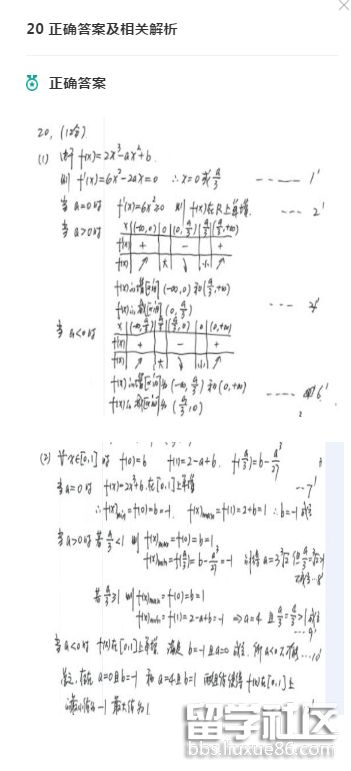 20 正确答案及相关解析
正确答案
20. (12分)
(1) 由于 f(x)=2x³-ax²+b.
则 f'(x)=6x²-2ax=0 ∴x=0或a/3 ------ 1'
当a=0时 f'(x)=6x²≥0 则f(x)在R上单增. ---- 2'
当a>0时 x (-∞,0) 0 (0,a/3) a/3 (a/3,+∞)
f'(x) + - +
f(x) ↗ 大 ↘ 小 ↗
f(x)的增区间(-∞,0)和(a/3,+∞)
f(x)的减区间(0,a/3) ---- 4'
当a<0时 x (-∞,a/3) a/3 (a/3,0) 0 (0,+∞)
f'(x) + - +
f(x) ↗ 大 ↘ 小 ↗
f(x)的增区间为(-∞,a/3)和(0,+∞)
f(x)的减区间为(a/3,0) ---- 6'
(2) 若x∈[0,1]时 f(0)=b f(1)=2-a+b. f(a/3)=b-a³/27
当a=0时 f(x)=2x³+b.在[0,1]上单增 --7'
∴f(x)min=f(0)=b=-1. f(x)max=f(1)=2+b=1 ∴b=-1成立
当a>0时 若a/3<1 则 f(x)max=f(0)=b=1
f(x)min=f(a/3)=b-a³/27=-1 a=3∛2 --8'
若a/3≥1 则 f(x)max=f(0)=b=1
f(x)min=f(1)=2-a+b=-1 ⇒a=4 且a/3=4/3>1成立
--9'
当a<0时 f(x)在[0,1]上单增 满足 b=-1且a=0成立. 所a<0不 --10'
总之. 存在 a=0且b=-1 和 a=4且b=1 f(x)在[0,1]上
的最小值为-1 最大值为1
留学社区
bbs.liuxue86.com